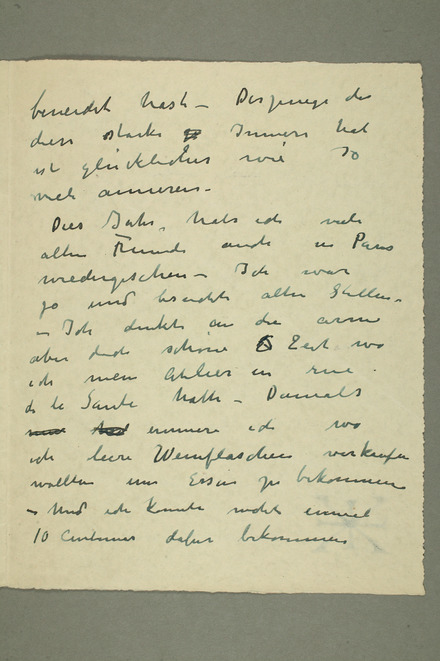 beneidet hast – Derjenige der
dies starke Innern hat
ist glücklicher wie so
viele anderen –
Dies Jahr, habe ich viele
alten Freunde auch in Paris
wiedergesehen – Ich war
so und besuchte alten Stellen –
– Ich denkte an die arme
aber doch schöne Zeit wo
ich mein Atelier in rue
de la Santé hatte – Damals
ich wo
ich leere Weinflaschen verkaufen
wollten um Essen zu bekommen
– Und ich konnte nicht einmal
10 Centimes dafür bekommen